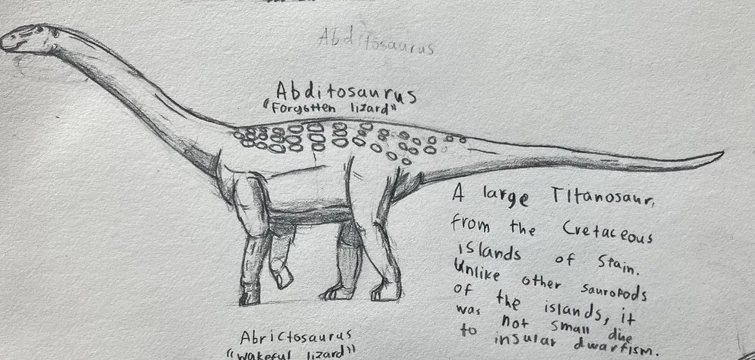 Abditosaurus
Abditosaurus
"Forgotten lizard"
A large Titanosaur,
from the Cretaceous
islands of Spain.
Unlike other sauropods
of the islands, it
was not small due
to insular dwarfism.
Abrictosaurus
"wakeful lizard"